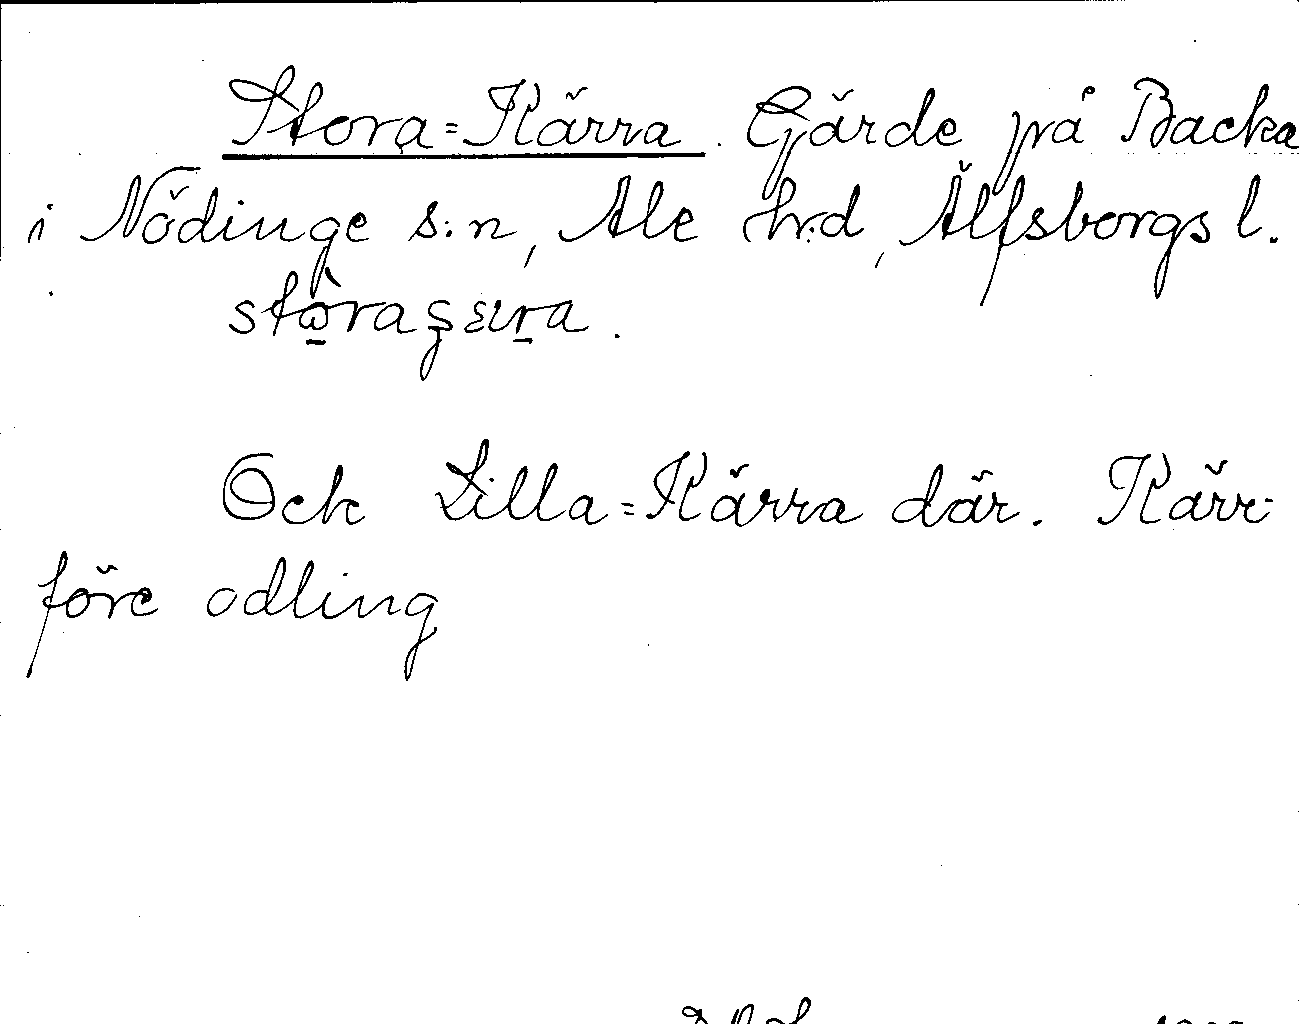 Stora=Kärra. Gärde på Backa
i Nödinge s:n, Ale h:d, Älfsborgs l.
Ock Lilla=Kärra där. Kärr
före odling